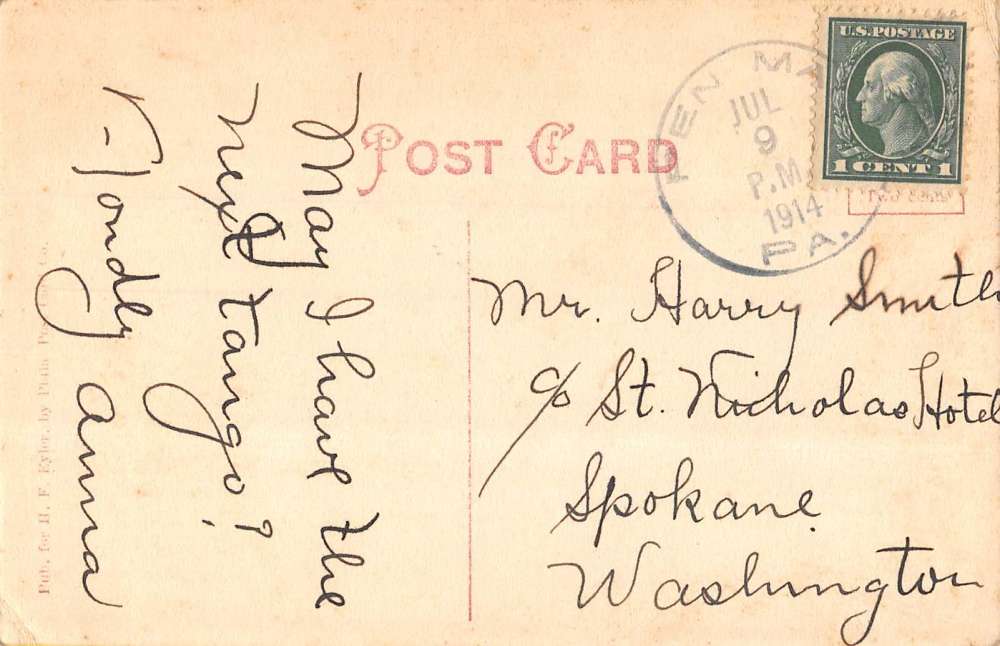 POST CARD
U.S. POSTAGE
1 CENT 1
PEN MA
JUL
9
P.M.
1914
PA.
May I have the
next tango?
Fondly Anna
Mr. Harry Smith
c/o St. Nicholas Hotel
Spokane
Washington
Pub. for H. F. Eyler, by